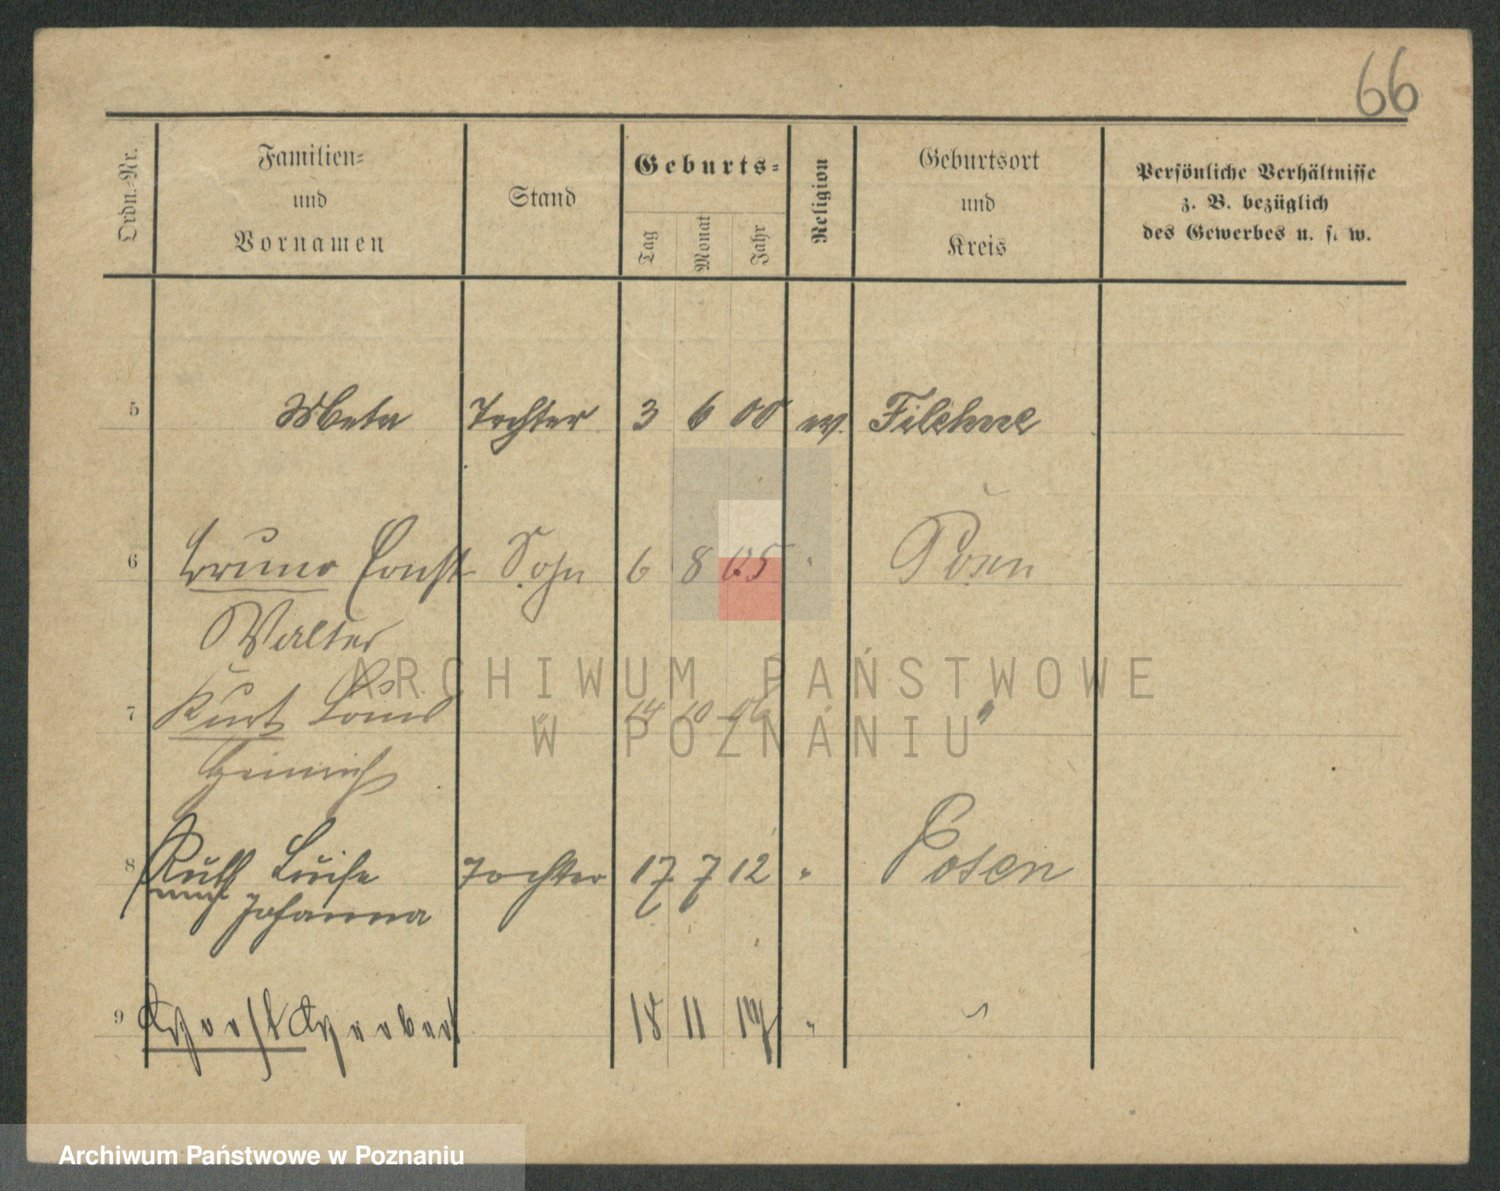 66
Ordn.-Nr.
Familien-
und
Vornamen
Stand
Geburts-
Tag
Monat
Jahr
Religion
Geburtsort
und
Kreis
Persönliche Verhältnisse
z. B. bezüglich
des Gewerbes u. s. w.
5 Meta Tochter 3 6 00 ev. Filehne
6 Bruno Ernst Sohn 6 8 05 " Posen
Walter
7 Kurt Louis 14 10 06 " "
Heinrich
8 Ruth Luise Tochter 17 7 12 " Posen
Johanna
9 Horst Herbert 18 11 "
ARCHIWUM PAŃSTWOWE
W POZNANIU
Archiwum Państwowe w Poznaniu